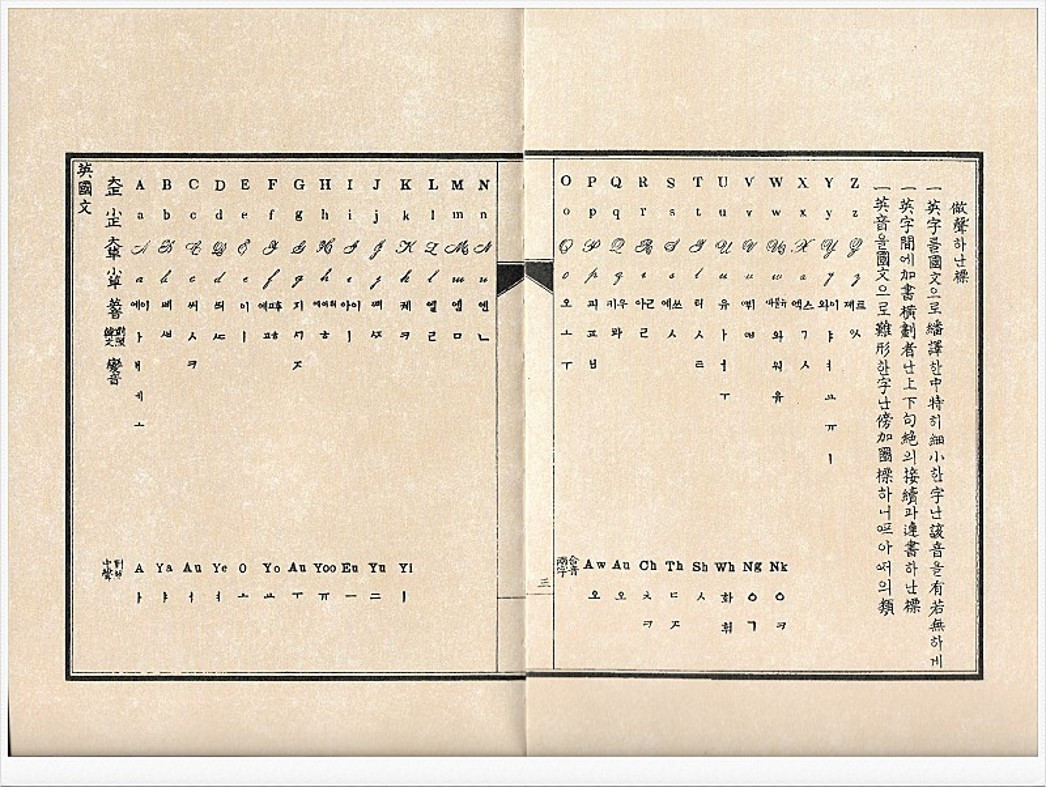 英國文
大正 A B C D E F G H I J K L M N
小正 a b c d e f g h i j k l m n
大草 A B C D E F G H I J K L M N
小草 a b c d e f g h i j k l m n
에이 삐 씨 띄 이 에프 지 아이 쩨 케 엘 엠 엔
ㅏ ㅣ ㅎ ㅣ ㅈ ㅋ ㄹ ㅁ ㄴ
變音 ㅐ ㅋ ㅈ
ㅔ
ㅗ
中聲 A Ya Au Ye O Yo Au Yoo Eu Yu Yi
ㅏ ㅑ ㅓ ㅕ ㅗ ㅛ ㅜ ㅠ ㅡ ㅣ
O P Q R S T U V W X Y Z
o p q r s t u v w x y z
O P Q R S T U V W X Y Z
o p q r s t u v w x y z
오 피 키우 아르 에쓰 티 유 엑스 와이 제트
ㅗ ㅍ 콰 ㄹ ㅅ ㅌ ㅏ 와 ㄱ ㅑ
ㅜ ㅂ ㅅ ㅓ 워 ㅅ ㅕ
ㅜ 유 ㅛ
ㅠ
ㅣ
合音 Aw Au Ch Th Sh Wh Ng Nk
오 오 ㅊ ㄷ ㅅ 화 ㆁ ㆁ
ㅋ ㅈ 휘 ㄱ ㅋ
三
做聲하난標
一 英字를國文으로繙譯한中特히細小한字난該音을有若無하게
一 英字間에加書橫劃者난上下句絶의接續과連書하난標
一 英音을國文으로難形한字난傍加圈標하니 아 의類